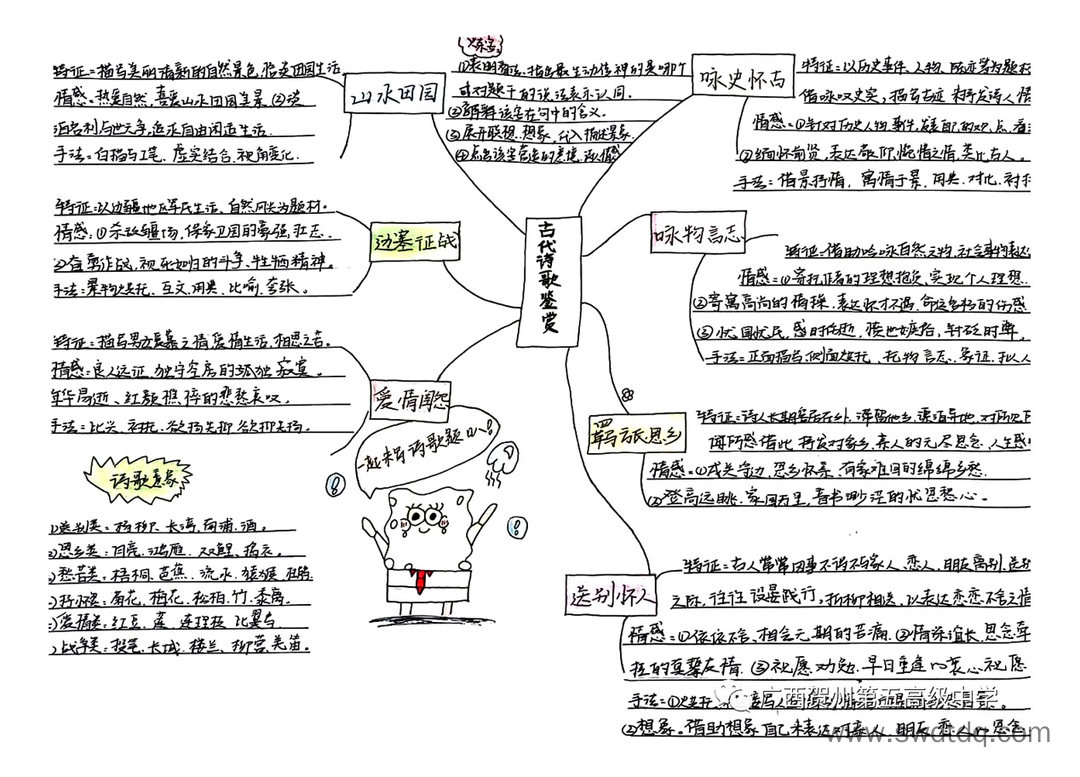 古代诗歌鉴赏
山水田园
特征：描写美丽清新的自然景色，恬美田园生活
情感：热爱自然，喜爱山水田园美景，②淡
泊名利与世无争，追求自由闲适生活.
手法：白描与工笔，虚实结合，视角变化.
边塞征战
特征：以边疆地区军民生活、自然风光为题材。
情感：①杀敌疆场，保家卫国的豪强，壮志.
②奋勇作战，视死如归的斗争、牺牲精神。
手法：景物烘托、互文、用典、比喻、夸张。
爱情闺怨
特征：描写男女爱慕之情，爱情生活，相思之苦。
情感：良人远征，独守空房的孤独寂寞。
年华易逝、红颜憔悴的悲愁哀叹.
手法：比兴、衬托、欲扬先抑、欲抑先扬.
诗歌意象
送别类：杨柳、长亭、南浦、酒。
思乡类：月亮、鸿雁、双鲤、捣衣。
愁苦类：梧桐、芭蕉、流水、猿猴、杜鹃
菊花、梅花、松柏、竹、黍离。
爱情类：红豆、莲、连理枝、比翼鸟
战争类：投笔、长城、楼兰、柳营、羌笛。
一起来写诗歌题吧~！
炼字
①表明看法，指出最生动传神的是哪个
或对题干的说法表示认同.
②解释该字在句中的含义。
③展开联想、想象，代入描述景象.
④点出该字营造的意境，或情感
咏史怀古
特征：以历史事件、人物、陈迹等为题材
借咏叹史实，描写古迹来抒发诗人情
情感：①针对历史人物事件，发表自己的观点、看法
②缅怀前贤，表达敬仰，惋惜之情，类比古人。
手法：借景抒情，寓情于景，用典、对比、衬托
咏物言志
特征：借助吟咏自然之物、社会事物表达
情感：①寄托作者的理想抱负，实现个人理想.
②寄寓高尚的情操，表达怀才不遇，命途多舛的伤感
③忧国忧民，感时伤逝，愤世嫉俗，针砭时弊，
手法：正面描写、侧面烘托、托物言志、象征、拟人
羁旅思乡
特征：诗人长期客居在外，滞留他乡，漂泊异地，对所见所
闻所感借此抒发对家乡、亲人的无尽思念，人生感
情感：①戍关守边，思乡怀亲，有家难回的绵绵乡愁
②登高远眺，家国万里，音书渺茫的忧思愁心。
送别怀人
特征：古人常常因事不得不与家人、恋人、朋友离别，送别
之际，往往设宴践行，折柳相送，以表达恋恋不舍之情
情感：①依依不舍、相会无期的苦痛.②情深谊长、思念牵
挂的真挚友情.③祝愿劝勉、早日重逢的衷心祝愿
手法：①烘托
②想象。借助想象自己来表达对亲人、朋友、恋人的思念
广西贺州第五高级中学
www.swdtdq.com